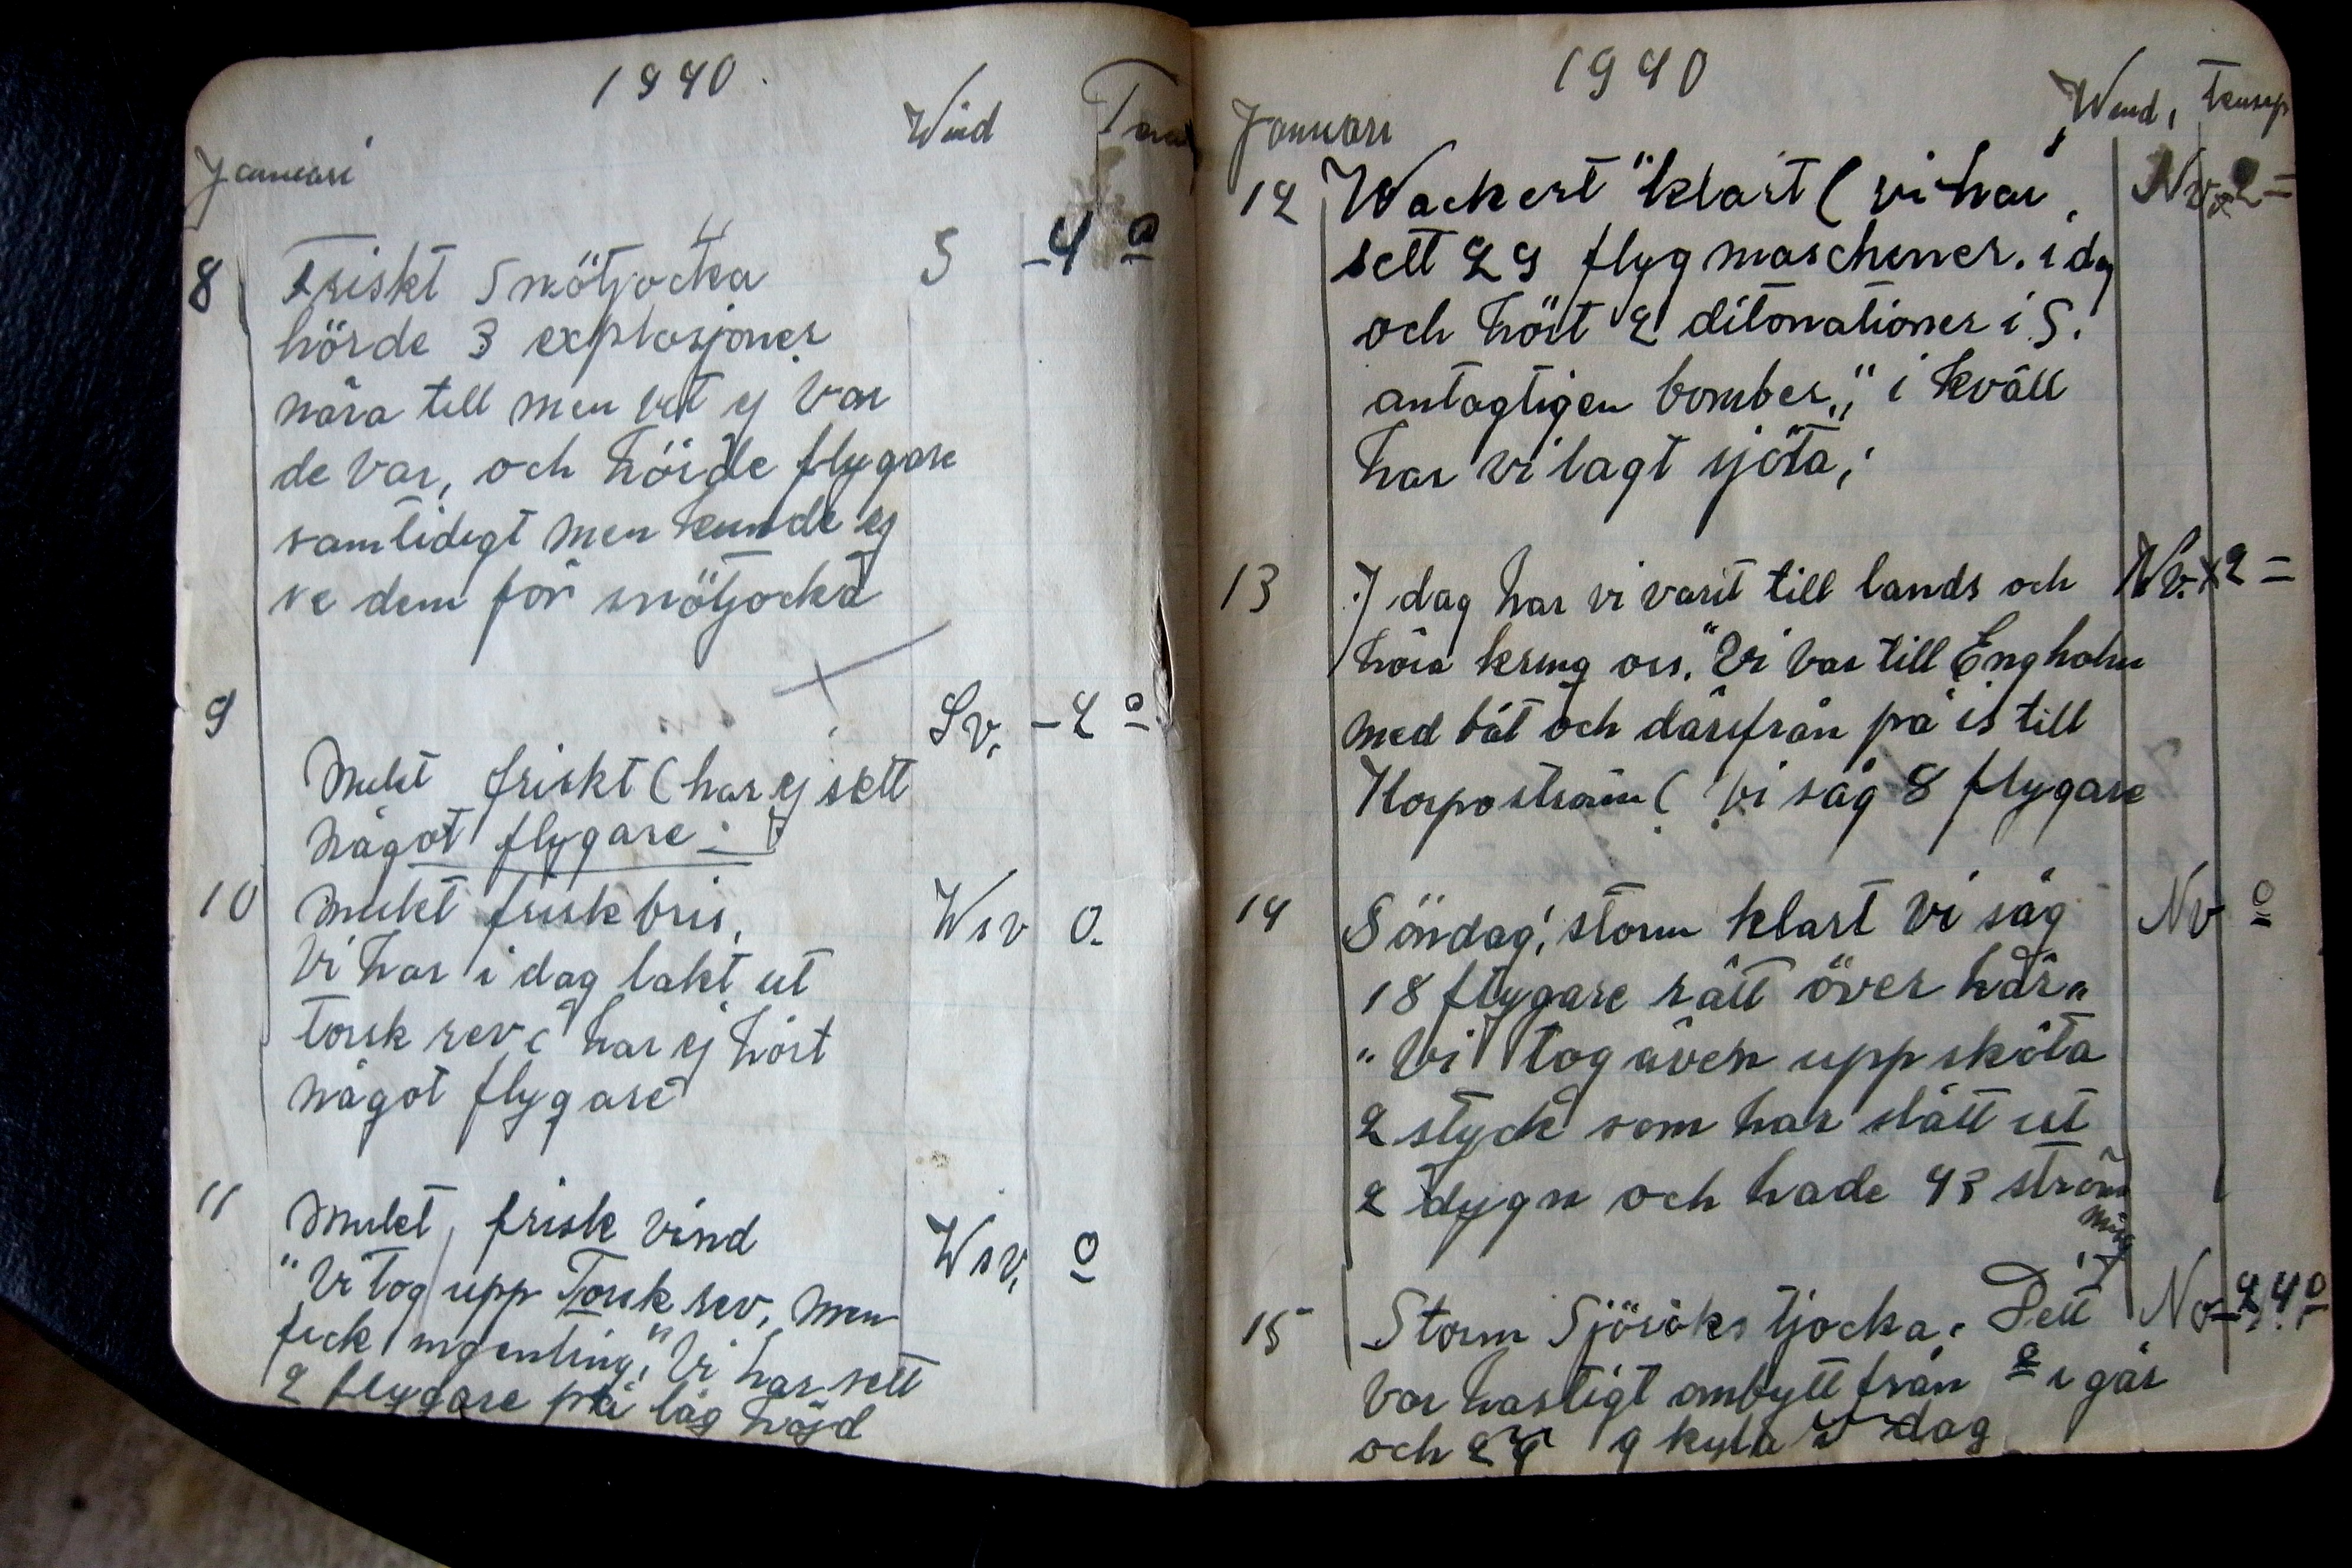 1940.
Januari Wind
8 Friskt Snötjocka S -4°
hörde 3 explosjoner
nära till men vet ej var
de var, och hörde flygare
samtidigt men kunde ej
se dem för snötjocka
9 Sv. -2°
Mukt friskt (har ej sett
något flygare
10 Mukt frisk bris, Wsv 0.
Vi har i dag lakt ut
Torsk rev har ej hört
något flygare
11 Mukt, frisk vind
"Vi tog upp Torsk rev, men Wsv. 0
fick ingenting," Vi har sett
2 flygare på låg höjd
1940
Januari Wind, Temp
12 Wackert "klart ( vi har Nv. 2=
sett 29 flygmaschener. i dag
och hört 2 ditonationer i S.
antagtigen bomber," i kväll
har vi lagt sjöta,
13 I dag har vi varit till lands och Nv. x2=
höra kring oss." Vi var till Engholm
med båt och därifrån på is till
Korpoström ( Vi såg 8 flygare
14 Söndag! storm klart Vi såg Nv 0
18 flygare rätt över här"
"Vi tog även upp sköta
2 styck som har stått ut
2 dygn och hade 43 ström
ming
15 Storm Sjöröks tjocka. Dett No
var hastigt ombytt från 2 i går
och kyla i dag